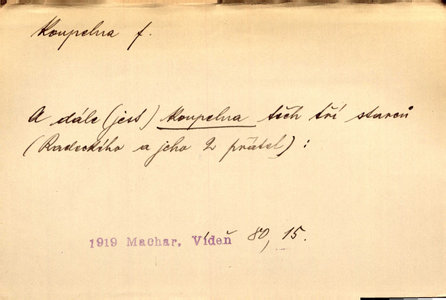 Koupelna f.
A dále (jest) koupelna těch tří starců
(Radeckého a jeho 2 přátel) :
1919 Machar, Vídeň 80, 15.